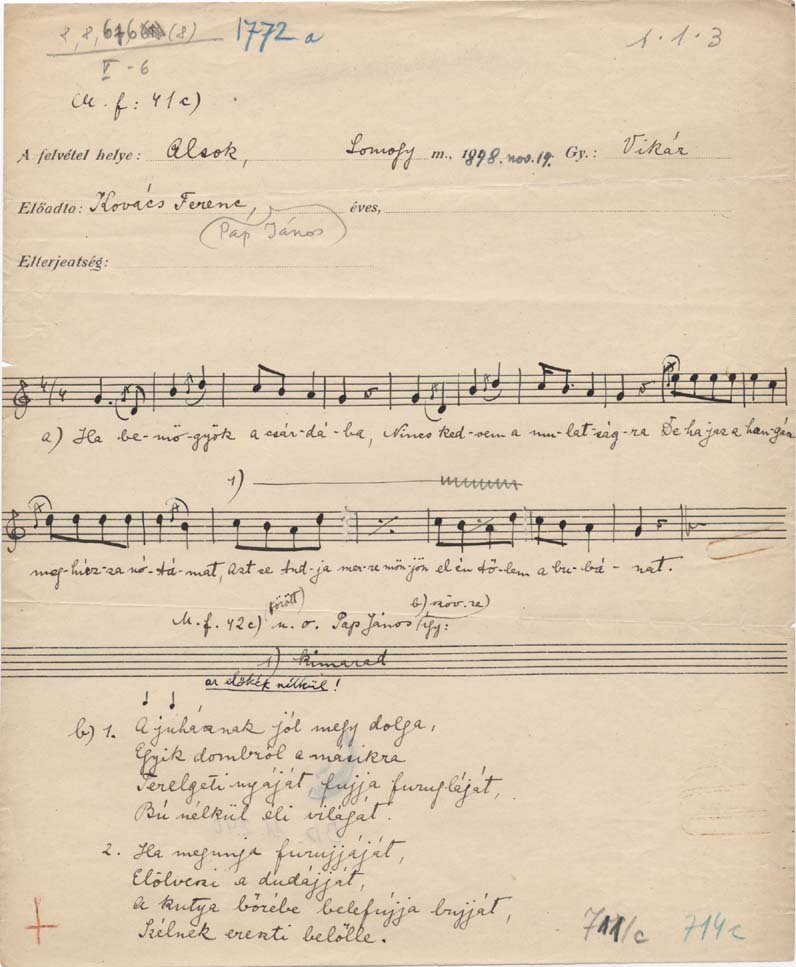 8, 8, 676 (8) 1772 a 1 · 1 · 3
V - 6
M. f: 41c)
A felvétel helye: Alsok, Somogy m., 1898. nov. 19. Gy.: Vikár
Előadta: Kovács Ferenc, éves,
(Pap János)
Elterjedtség:
4/4
a) Ha be-mö-gyök a csár-dá-ba, Nincs ked-vem a mu-lat-ság-ra De ha jaz a
1)
meg-húz-za nó-tá-mat, Azt se tud-ja mer-re mön-jön el én tő-lem a bu-bá-nat.
M. f. 42c) (törött) u. o. Pap János b) szöv. re) így:
1) kimarad
az előkék nélkül!
b) 1. A juhásznak jól megy dolga,
Egyik dombról a másikra
Terelgeti nyáját, fujja furugláját,
Bú nélkül éli világát.
2. Ha megunja furujjáját,
Előlveszi a dudájját,
A kutya bőrébe belefújja bujját,
Szélnek ereszti belőlle.
711/c 714c